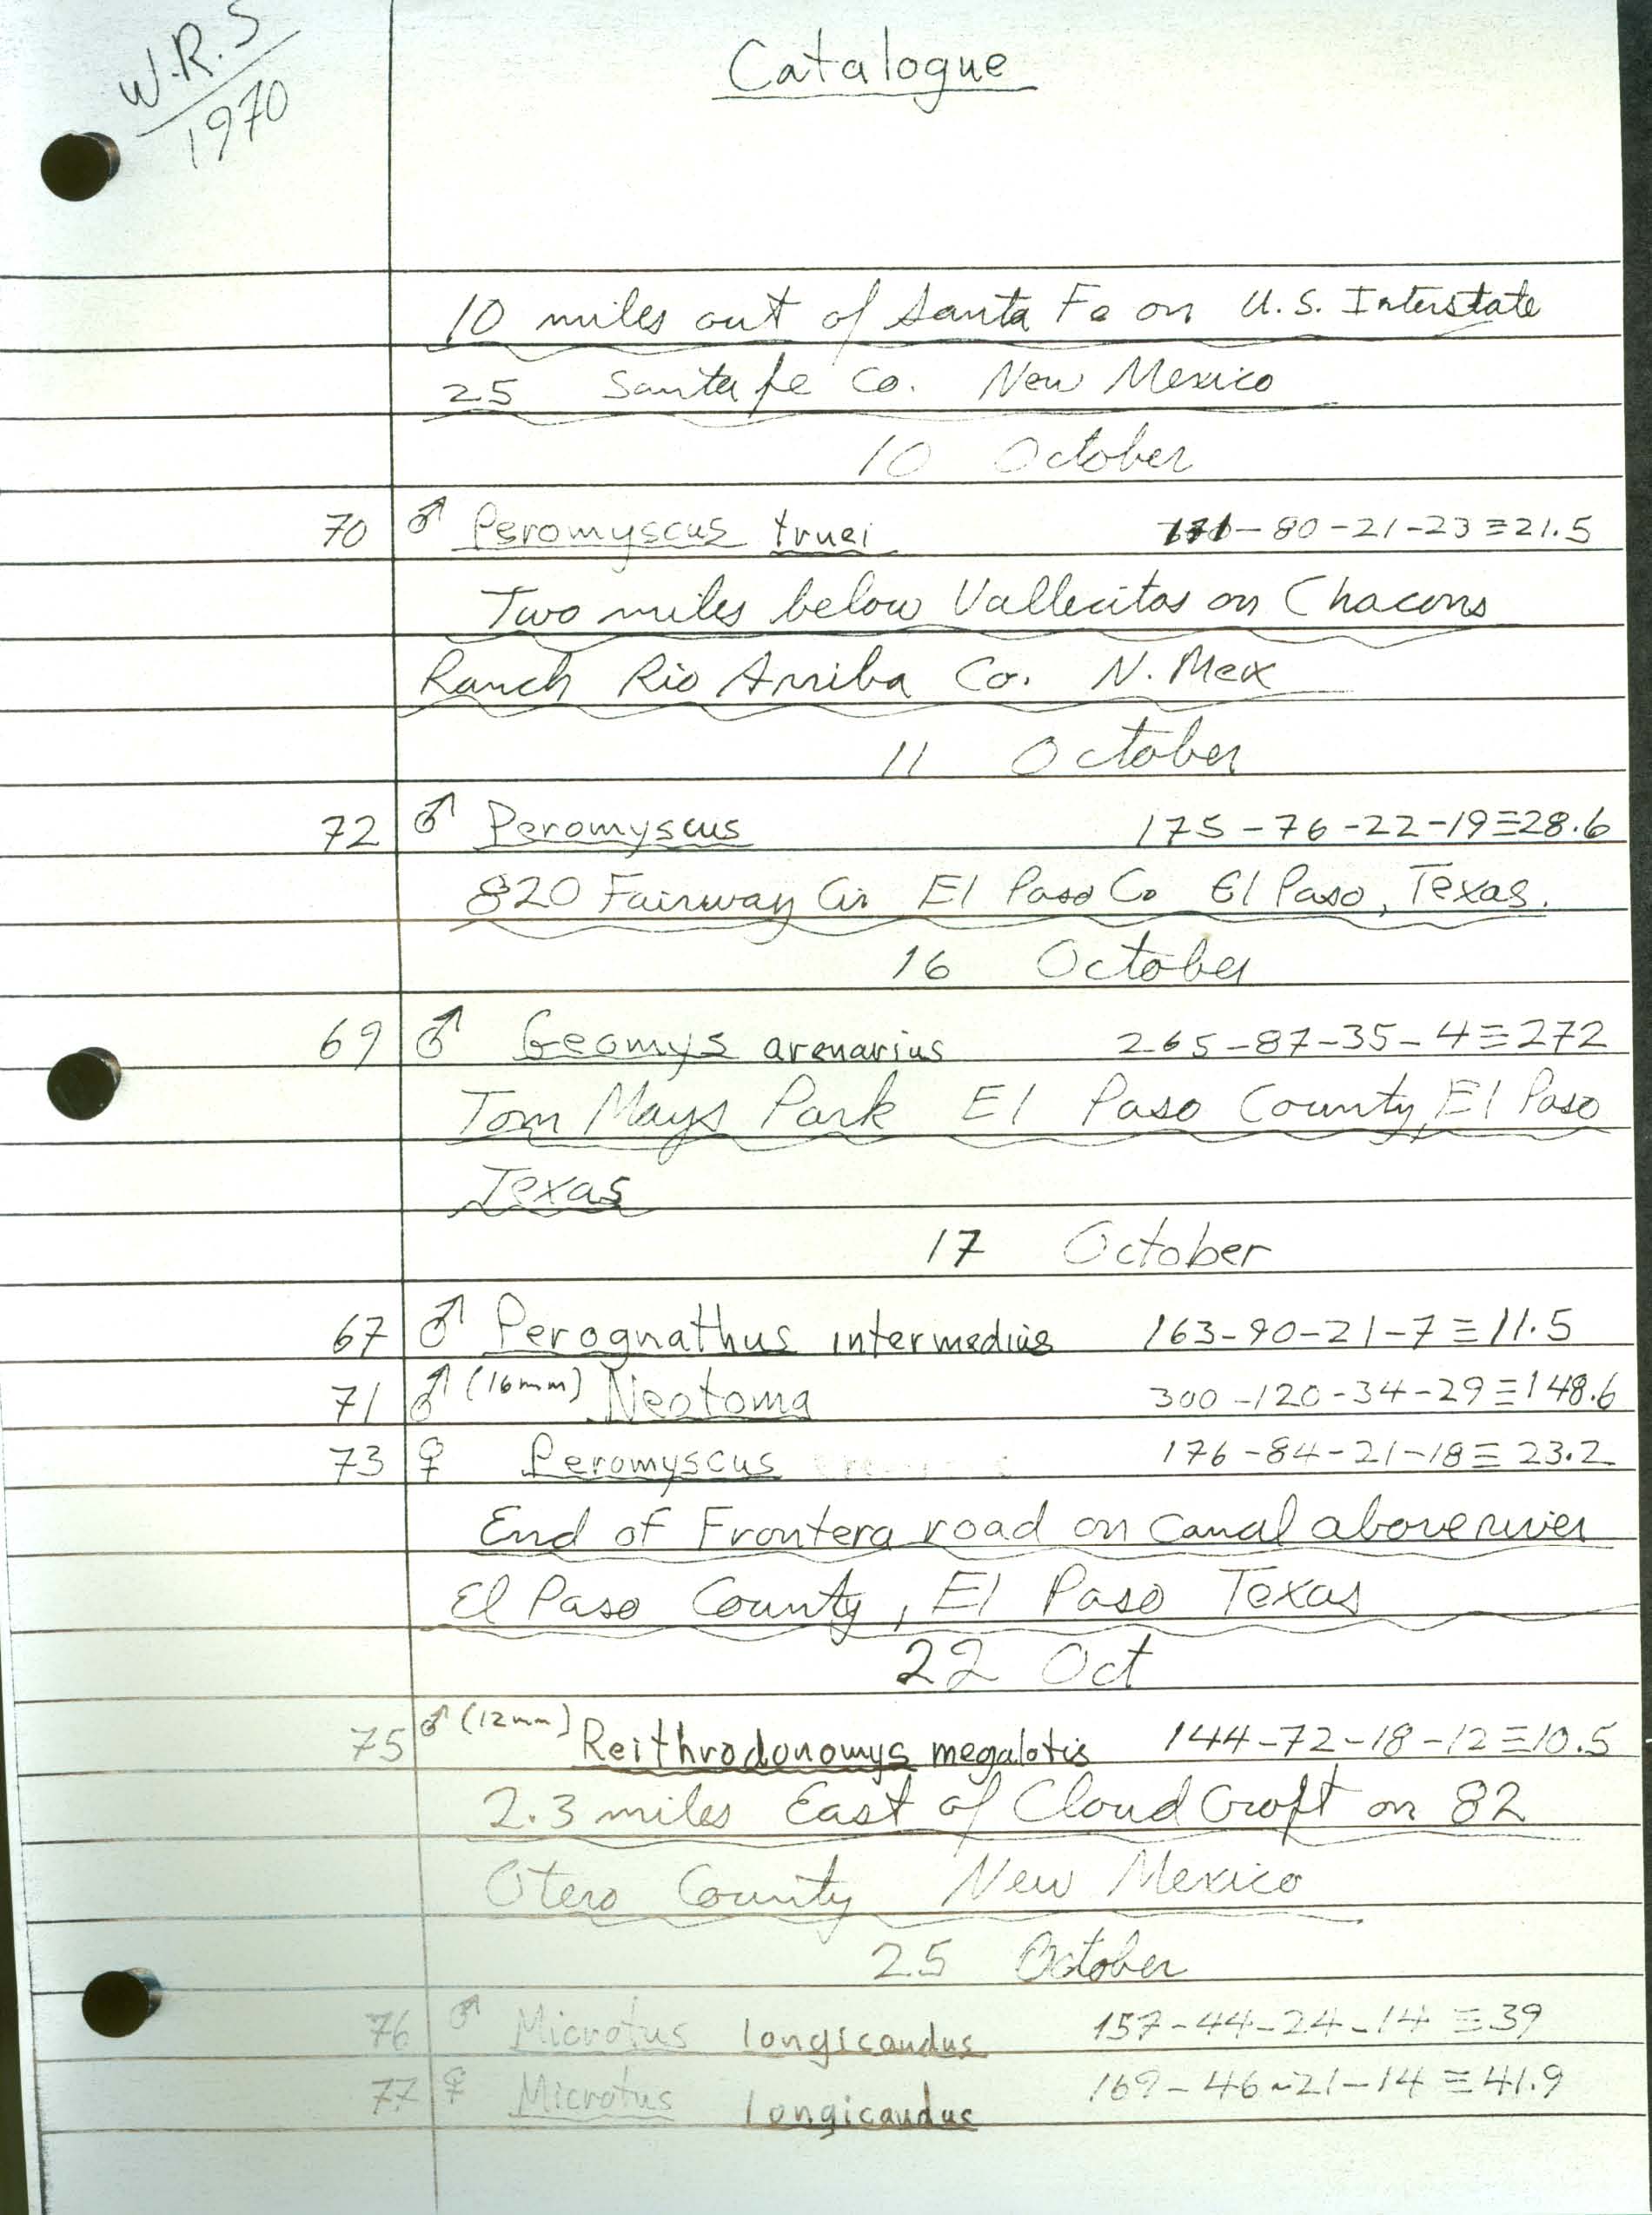 W.R.S
1970
Catalogue
10 miles out of Santa Fe on U.S. Interstate
25 Santa fe Co. New Mexico
10 October
70 ♂ Peromyscus truei 171-80-21-23≡21.5
Two miles below Vallecitos on Chacons
Ranch Rio Arriba Co. N. Mex
11 October
72 ♂ Peromyscus 175-76-22-19≡28.6
820 Fairway Cir El Paso Co El Paso, Texas.
16 October
69 ♂ Geomys arenarius 265-87-35-4≡272
Tom Mays Park El Paso County, El Paso
Texas
17 October
67 ♂ Perognathus intermedius 163-90-21-7≡11.5
71 ♂ (16mm) Neotoma 300-120-34-29≡148.6
73 ♀ Peromyscus 176-84-21-18≡23.2
End of Frontera road on Canal above river
El Paso County, El Paso Texas
22 Oct
75 ♂ (12mm) Reithrodonomys megalotis 144-72-18-12≡10.5
2.3 miles East of Cloud Croft on 82
Otero County New Mexico
25 October
76 ♂ Microtus longicaudus 157-44-24-14≡39
77 ♀ Microtus longicaudus 169-46-21-14≡41.9